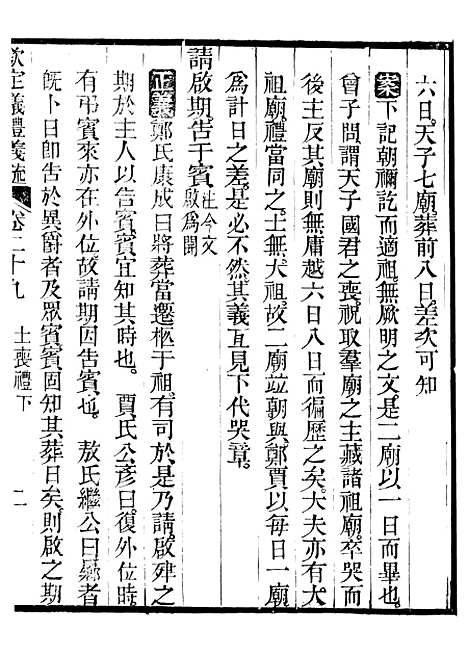 六日天子七廟葬前八日差次可知
案下記朝禰訖而適祖無厥明之文是二廟以一日而畢也
曾子問謂天子國君之喪祝取羣廟之主藏諸祖廟卒哭而
後主反其廟則無庸越六日八日而徧歷之矣大夫亦有大
祖廟禮當同之士無大祖故二廟竝朝與鄭賈以每日一廟
爲計日之差是必不然其義互見下代哭章
請啟期告于賓注今文啟爲開
正義鄭氏康成曰將葬當遷柩于祖有司於是乃請啟肂之
期於主人以告賓賓宜知其時也 賈氏公彥曰復外位時
有弔賓來亦在外位故請期因告賓也 敖氏繼公曰曏者
旣卜日卽告於異爵者及眾賓賓固知其葬日矣則啟之期
欽定儀禮義疏 卷二十九 士喪禮下 二